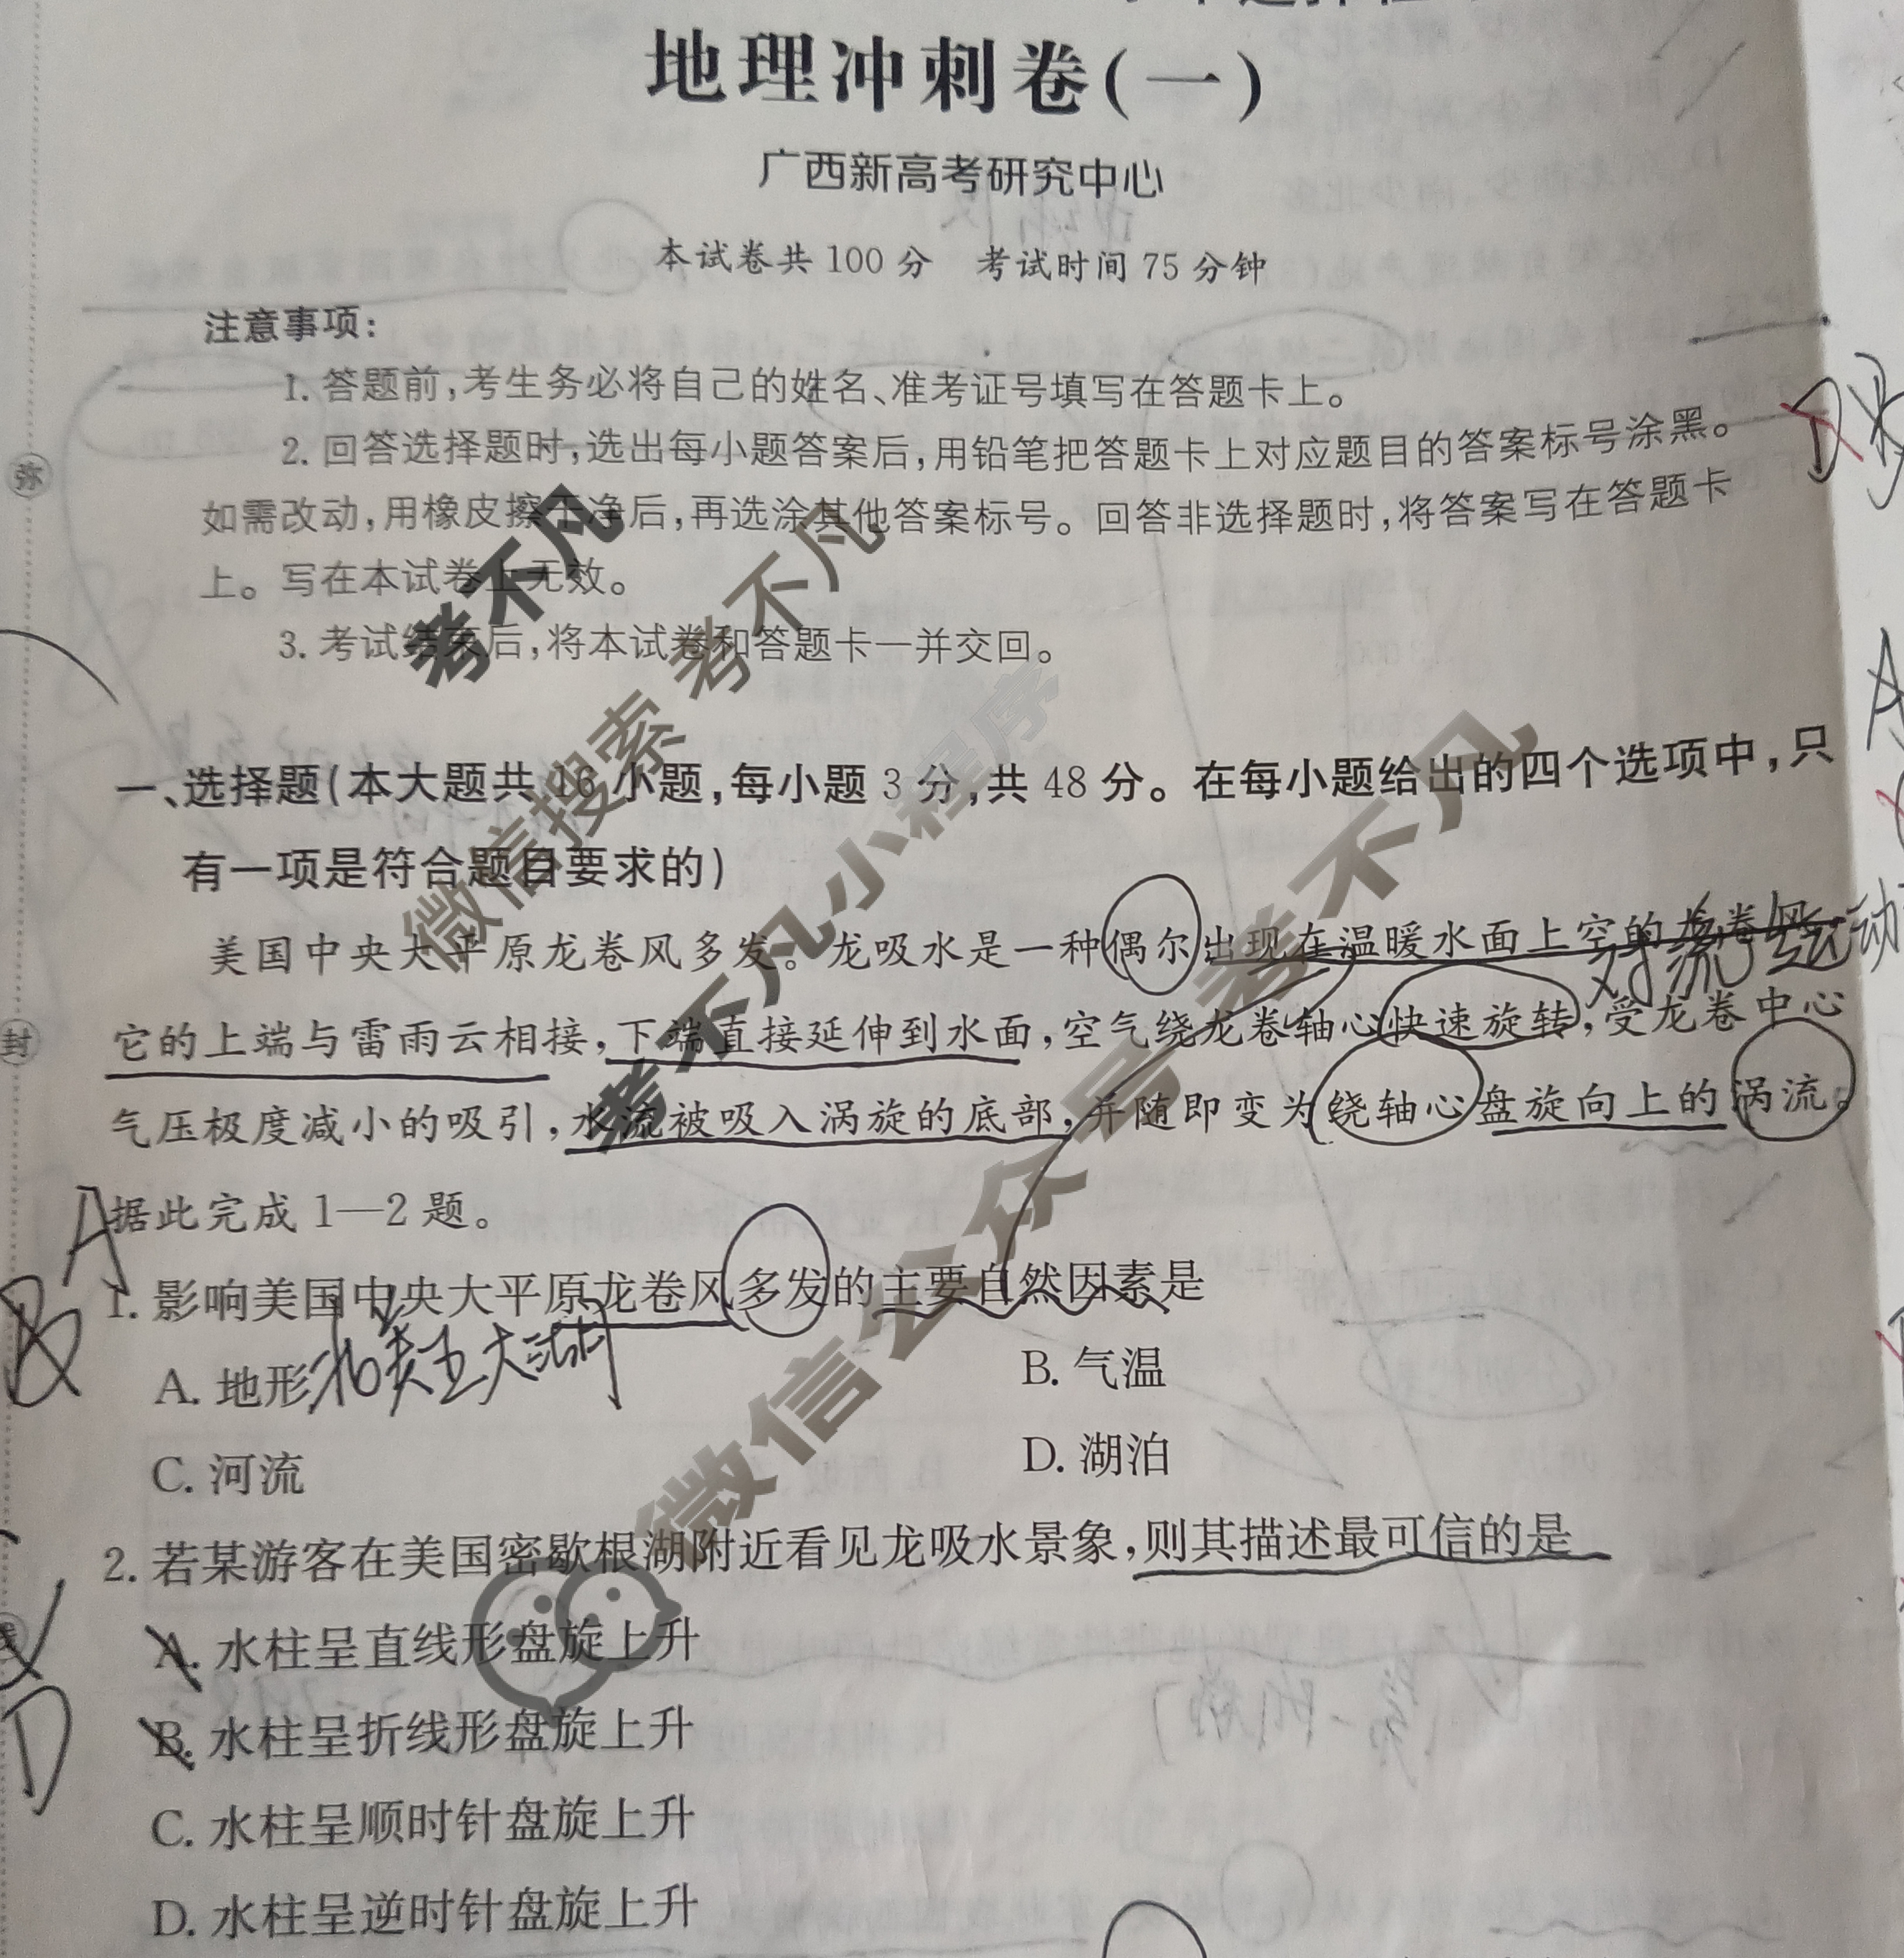 地理冲刺卷(一)
广西新高考研究中心
本试卷共 100 分 考试时间 75 分钟
注意事项:
1. 答题前,考生务必将自己的姓名、准考证号填写在答题卡上。
2. 回答选择题时,选出每小题答案后,用铅笔把答题卡上对应题目的答案标号涂黑。
如需改动,用橡皮擦干净后,再选涂其他答案标号。回答非选择题时,将答案写在答题卡
上。写在本试卷上无效。
3. 考试结束后,将本试卷和答题卡一并交回。
考不凡
微信搜索 考不凡
考不凡小程序
微信公众号 考不凡
弥
封
线
一、选择题(本大题共 16 小题,每小题 3 分,共 48 分。在每小题给出的四个选项中,只
有一项是符合题目要求的)
美国中央大平原龙卷风多发。龙吸水是一种偶尔出现在温暖水面上空的龙卷风,
对流运动
它的上端与雷雨云相接,下端直接延伸到水面,空气绕龙卷轴心快速旋转,受龙卷中心
气压极度减小的吸引,水流被吸入涡旋的底部,并随即变为绕轴心盘旋向上的涡流。
据此完成 1—2 题。
A
B
1. 影响美国中央大平原龙卷风多发的主要自然因素是
A. 地形
北美五大湖
B. 气温
C. 河流
D. 湖泊
2. 若某游客在美国密歇根湖附近看见龙吸水景象,则其描述最可信的是
A. 水柱呈直线形盘旋上升
B. 水柱呈折线形盘旋上升
D
C. 水柱呈顺时针盘旋上升
D. 水柱呈逆时针盘旋上升
D
A